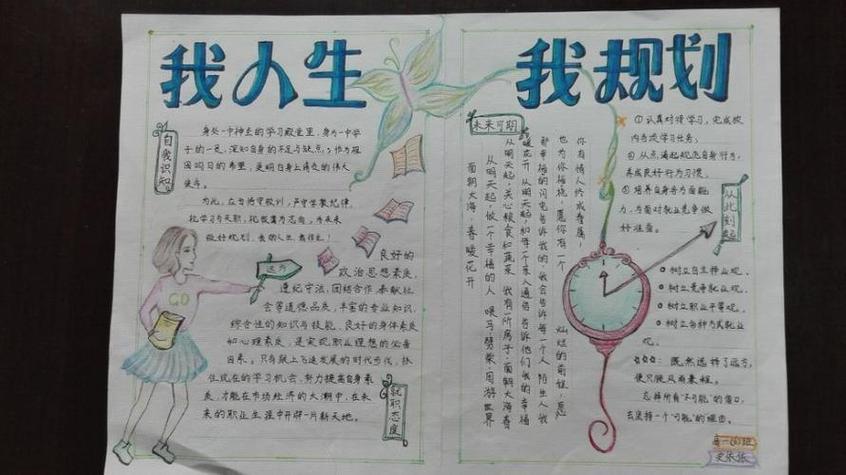 我人生
我规划
自我识知
身处一中神圣的学习殿堂里，身为一中学
子的一员，深知自身的不足与缺点；作为祖
国明日的希望，更明白身上肩负的伟大
使命。
为此，在自身守校训，严守学习纪律，
我的人生
远方
良好的
政治思想素质，
遵纪守法，团结合作，奉献社
会等道德品质，丰富的专业知识，
综合性的知识与技能，良好的身体素质
和心理素质，是实现职业理想的必备
因素。只有跟上飞速发展的时代步伐，抓
住现在的学习机会，努力提高自身素
质，才能在市场经济的大潮中，在未
来的职业生涯中开辟一片新天地。
就职态度
GO
未来可期
你有情人终成眷属，
也为你祝福，愿你有一个
灿烂的前程，愿
那幸福的闪电告诉我的，我会告诉每一个人
陌生人，我
暖花开
从明天起，和每一个亲人通信
告诉他们我的幸福
从明天起，关心粮食和蔬菜
我有一所房子，面朝大海，春
从明天起，做一个幸福的人
喂马，劈柴，周游世界
面朝大海，春暖花开
①认真对待学习，完成校
内各项学习任务；
②从点滴起规范自身行为，
养成良好行为习惯。
③培养自身各方面能
力，为面对就业竞争做
好准备。
从此刻起
树立自主择业观，
树立竞争就业观，
树立职业平等观，
树立多种方式就业
观。
既然选择了远方，
便只顾风雨兼程。
忘掉所有“不可能”的借口，
去坚持一个“可能”的理由。